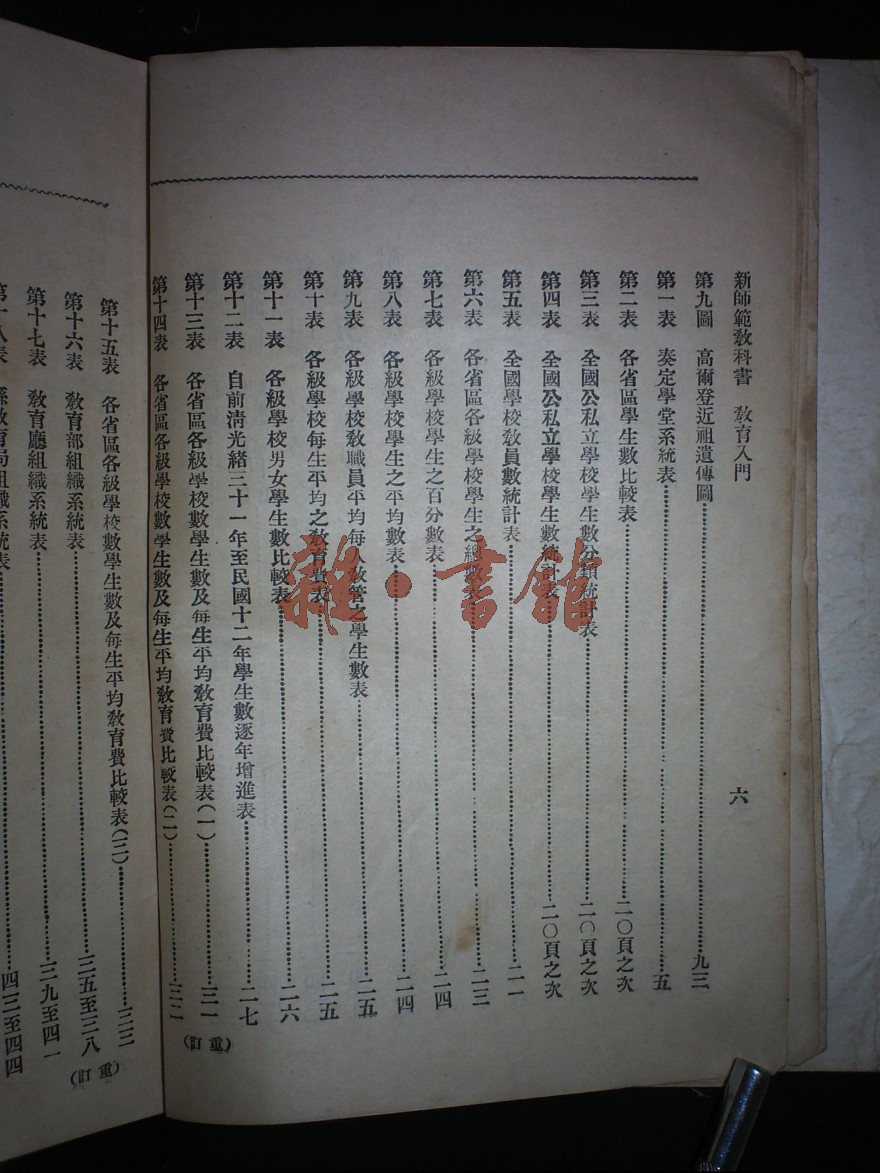 新師範教科書　教育入門　六
第九圖　高爾登近祖遺傳圖……九三
第一表　奏定學堂系統表……五
第二表　各省區學生數比較表……二〇頁之次
第三表　全國公私立學校學生數分類統計表……二〇頁之次
第四表　全國公私立學校學生數統計表……二〇頁之次
第五表　全國學校教員數統計表……二一
第六表　各省區各級學校學生之總數表……二三
第七表　各級學校學生之百分數表……二四
第八表　各級學校學生之平均數表……二四
第九表　各級學校教職員平均每人教管之學生數表……二五
第十表　各級學校每生平均之教育費表……二五
第十一表　各級學校男女學生數比較表……二六
第十二表　自前清光緒三十一年至民國十二年學生數逐年增進表……二七
第十三表　各省區各級學校數學生數及每生平均教育費比較表(一)……三一
第十四表　各省區各級學校數學生數及每生平均教育費比較表(二)……三二
(重訂)
第十五表　各省區各級學校數學生數及每生平均教育費比較表(三)……三三
第十六表　教育部組織系統表……三五至三八
第十七表　教育廳組織系統表……三九至四一
第十八表　縣教育局組織系統表……四三至四四
(重訂)
雜·書館